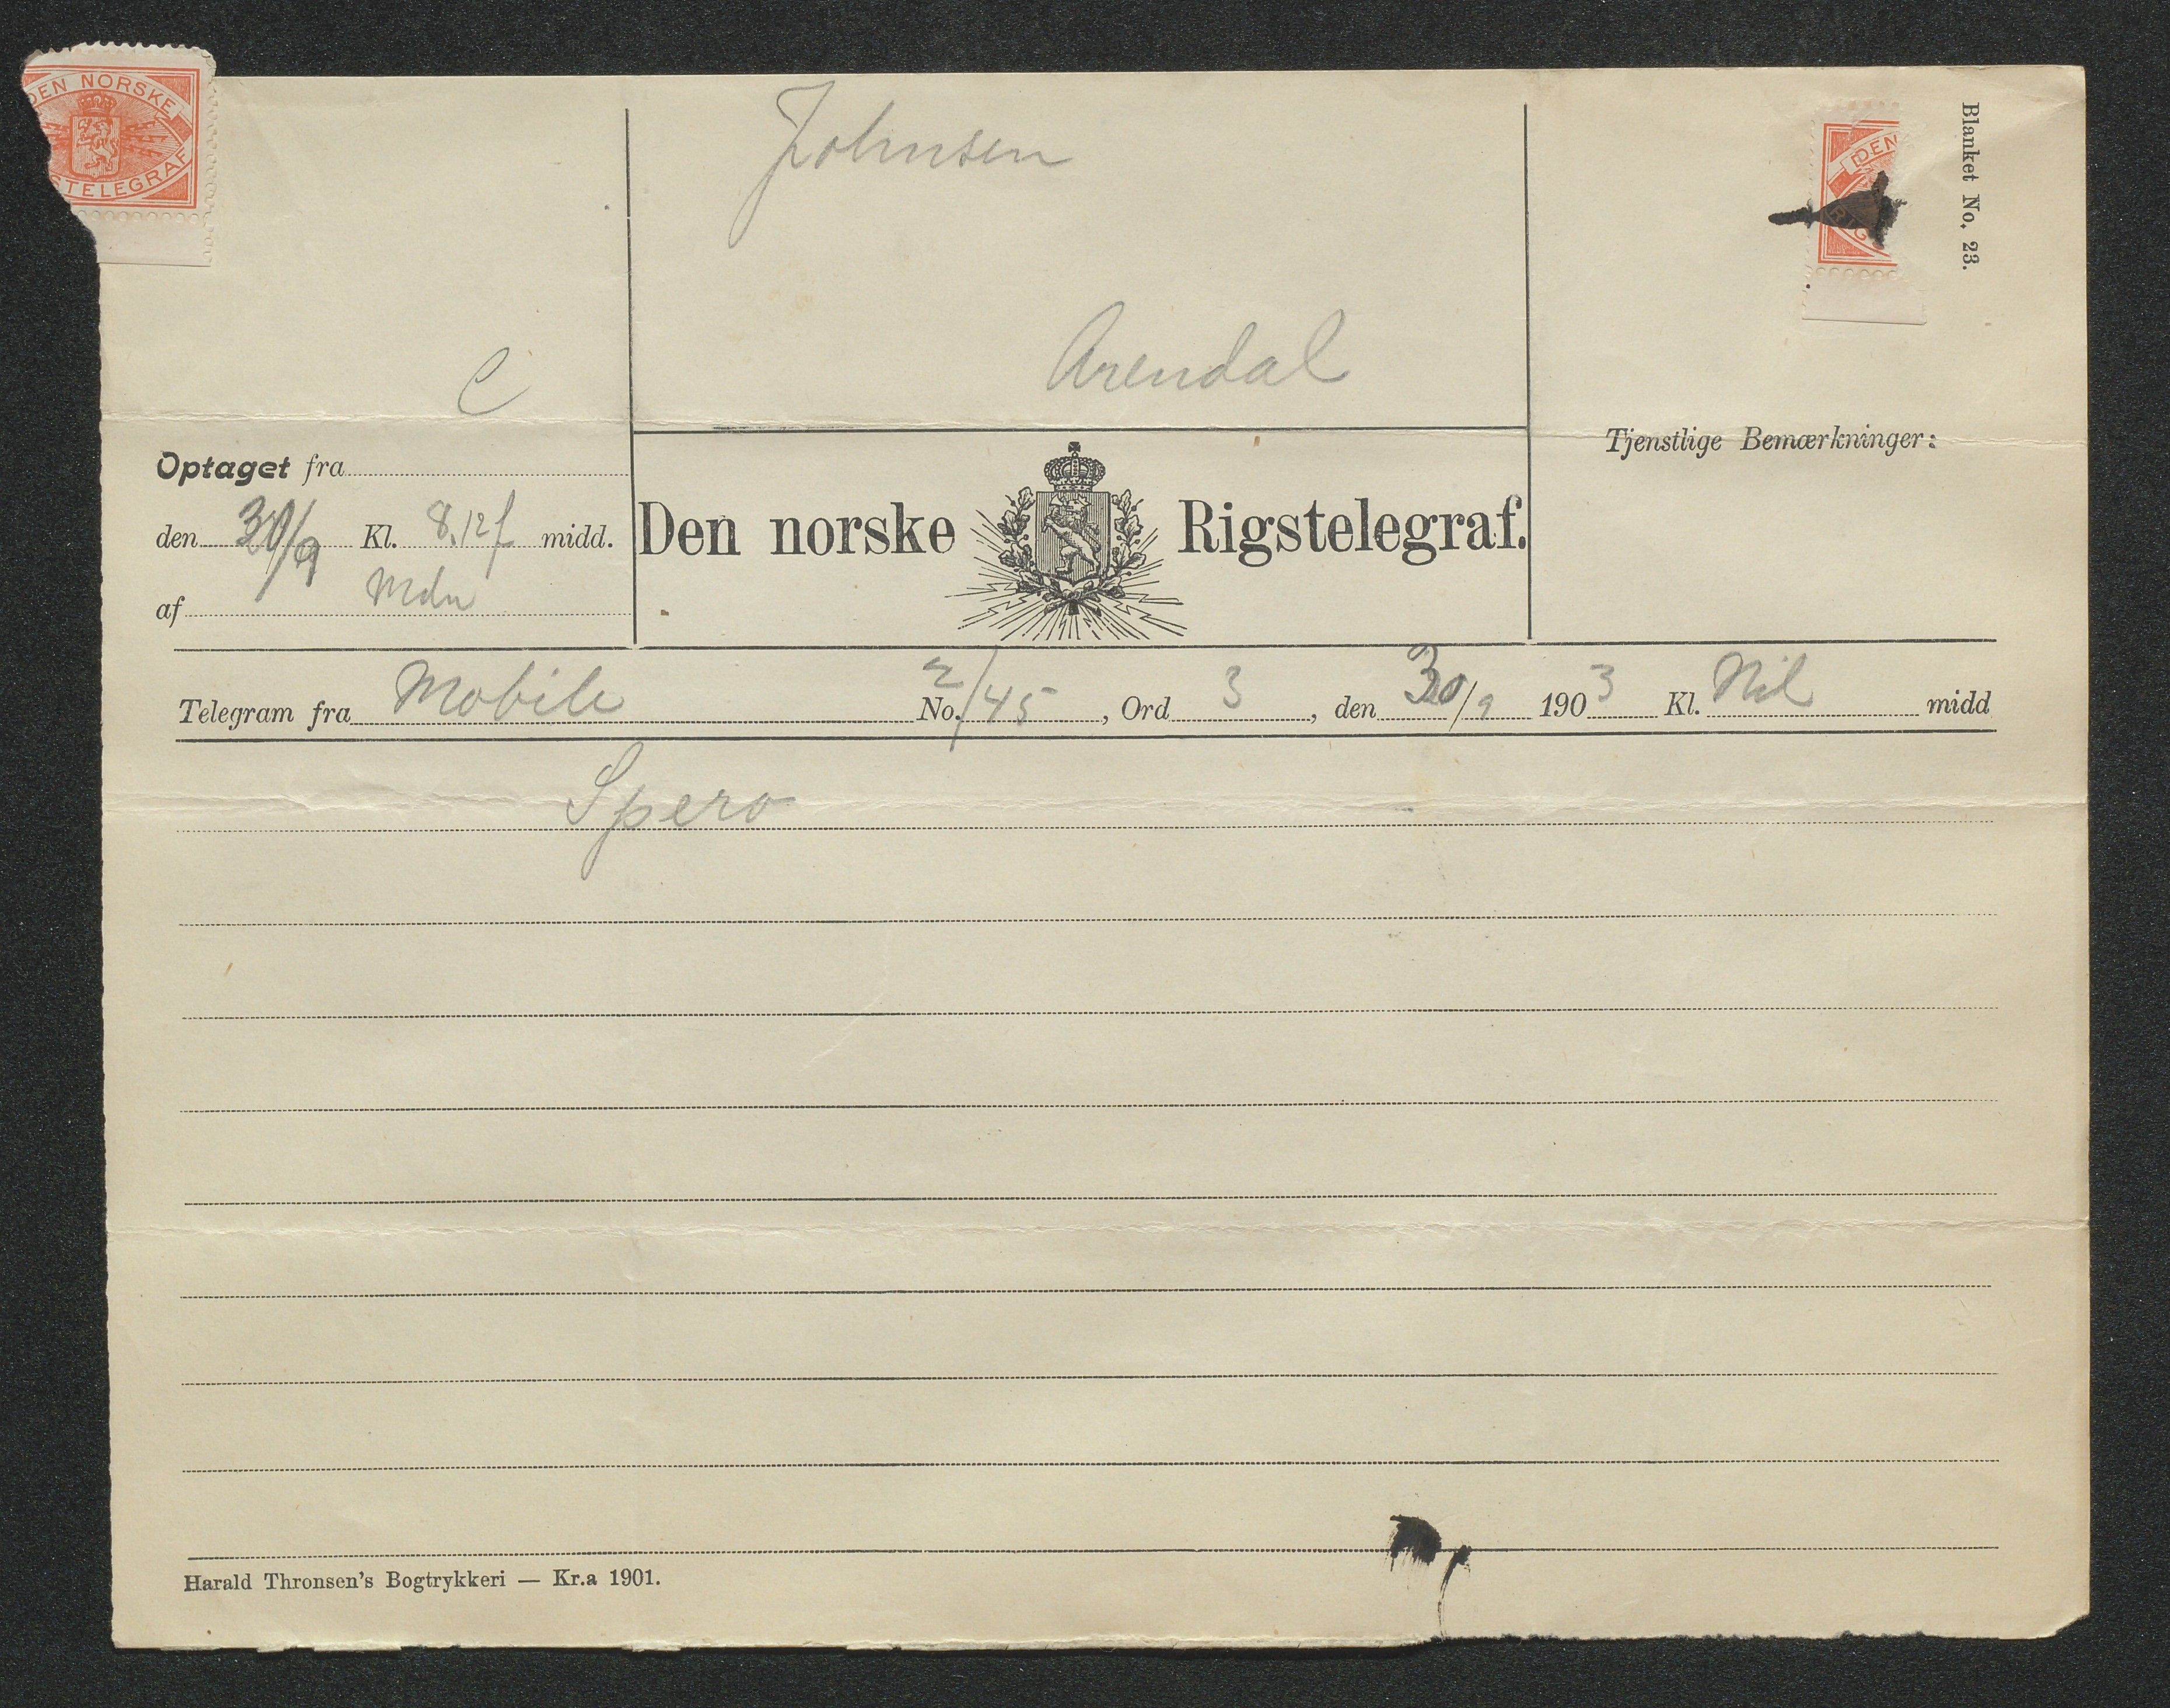 DEN NORSKE
STELEGRAF
DEN
RIG
Blanket No. 23.
Johnsen
Arendal
C
Tjenstlige Bemærkninger:
Optaget fra
den 30/9 Kl. 8.12 f midd.
af Mdn
Den norske Rigstelegraf.
Telegram fra Mobile No. 2/45, Ord 3, den 30/9 1903 Kl. Nil midd
Spero
Harald Thronsen's Bogtrykkeri — Kr.a 1901.